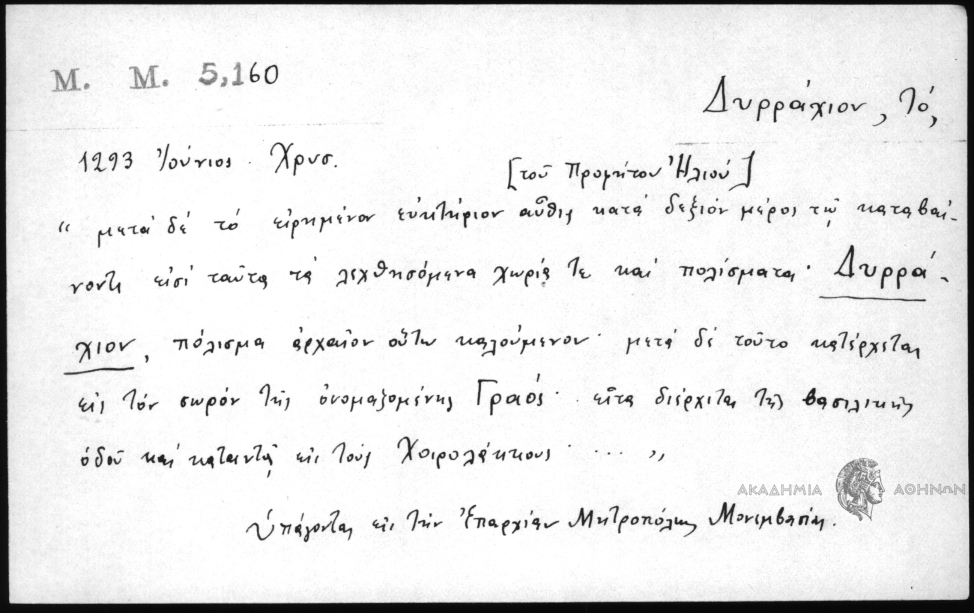 Μ. Μ. 5,160
Δυρράχιον, τό,
1293 Ἰούνιος. Χρυσ.
[τοῦ Προφήτου Ἠλιού]
“ μετά δέ τό εἰρημένον εὐκτήριον αὖθις κατά δεξιόν μέρος τῷ καταβαί-
νοντι εἰσί ταῦτα τά λεχθησόμενα χωρία τε καί πολίσματα· Δυρρά-
χιον, πόλισμα ἀρχαῖον οὕτω καλούμενον· μετά δέ τοῦτο κατέρχεται
εἰς τόν σωρόν τῆς ὀνομαζομένης Γραός· εἶτα διέρχεται τῆς βασιλικῆς
ὁδοῦ καί καταντᾷ εἰς τούς Χοιρολάκκους· ... ”
ΑΚΑΔΗΜΙΑ ΑΘΗΝΩΝ
Ὑπάγονται εἰς τήν Ἐπαρχίαν Μητροπόλεως Μονεμβασίας.